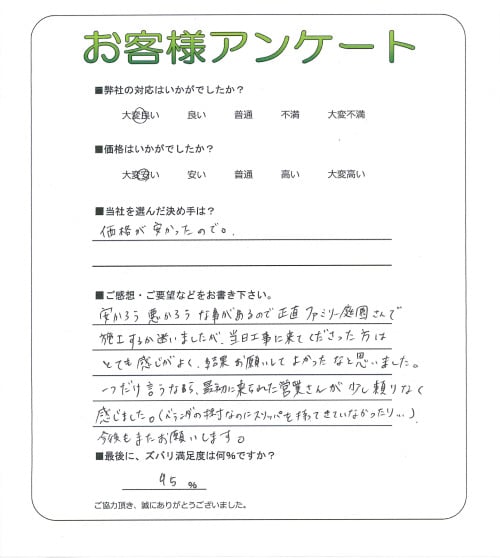 お客様アンケート
■弊社の対応はいかがでしたか？
大変良い 良い 普通 不満 大変不満
■価格はいかがでしたか？
大変安い 安い 普通 高い 大変高い
■当社を選んだ決め手は？
価格が安かったので。
■ご感想・ご要望などをお書き下さい。
安かろう悪かろうな事があるので正直ファミリー庭園さんで
施工するか迷いましたが、当日工事に来てくださった方は
とても感じがよく、結果お願いしてよかったなと思いました。
一つだけ言うなら、最初に来られた営業さんが少し頼りなく
感じました。(ベランダの採寸なのにスリッパも持ってきていなかったり…)
今後もまたお願いします。
■最後に、ズバリ満足度は何%ですか？
95 %
ご協力頂き、誠にありがとうございました。